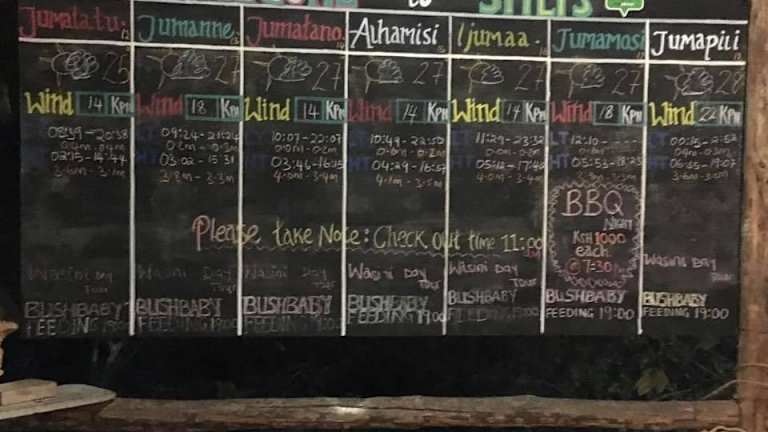 to STILTS
Jumatatu: 12
25
Wind 14 KPH
08:39-20:58
0.4m 0.4m
02:15-14:44
3.6m - 3.1m
Wasini Day
Tour
BUSHBABY
FEEDING 19:00
Jumanne: 13
27
Wind 18 KPH
LT 09:24-21:24
HT 03:02-15:31
3.8m - 3.3m
Wasini Day
Tour
BUSHBABY
FEEDING 19:00
Jumatano: 14
27
Wind 14 KPH
LT 10:07-22:07
0.0m - 0.2m
HT 03:46-16:15
4.0m - 3.4m
Wasini Day
Tour
BUSHBABY
FEEDING 19:00
Alhamisi 15
27
Wind 14 KPH
LT 10:49-22:50
HT 04:29-16:57
4.1m - 3.5m
Wasini Day
Tour
BUSHBABY
FEEDING 19:00
Ijumaa
27
Wind 14 KPH
LT 11:29-23:32
HT 05:12-17:40
4.0m - 3.4m
Wasini Day
Tour
BUSHBABY
FEEDING 19:00
Jumamosi
27
Wind 18 KPH
LT 12:10-
HT 05:53-18:23
BBQ
NIGHT
KSH 1000
each
@ 7:30
BUSHBABY
FEEDING 19:00
Jumapili
28
Wind 22 KPH
LT 00:15-
HT 06:35-19:07
Wasini Day
Tour
BUSHBABY
FEEDING 19:00
Please take Note: Check out time 11:00